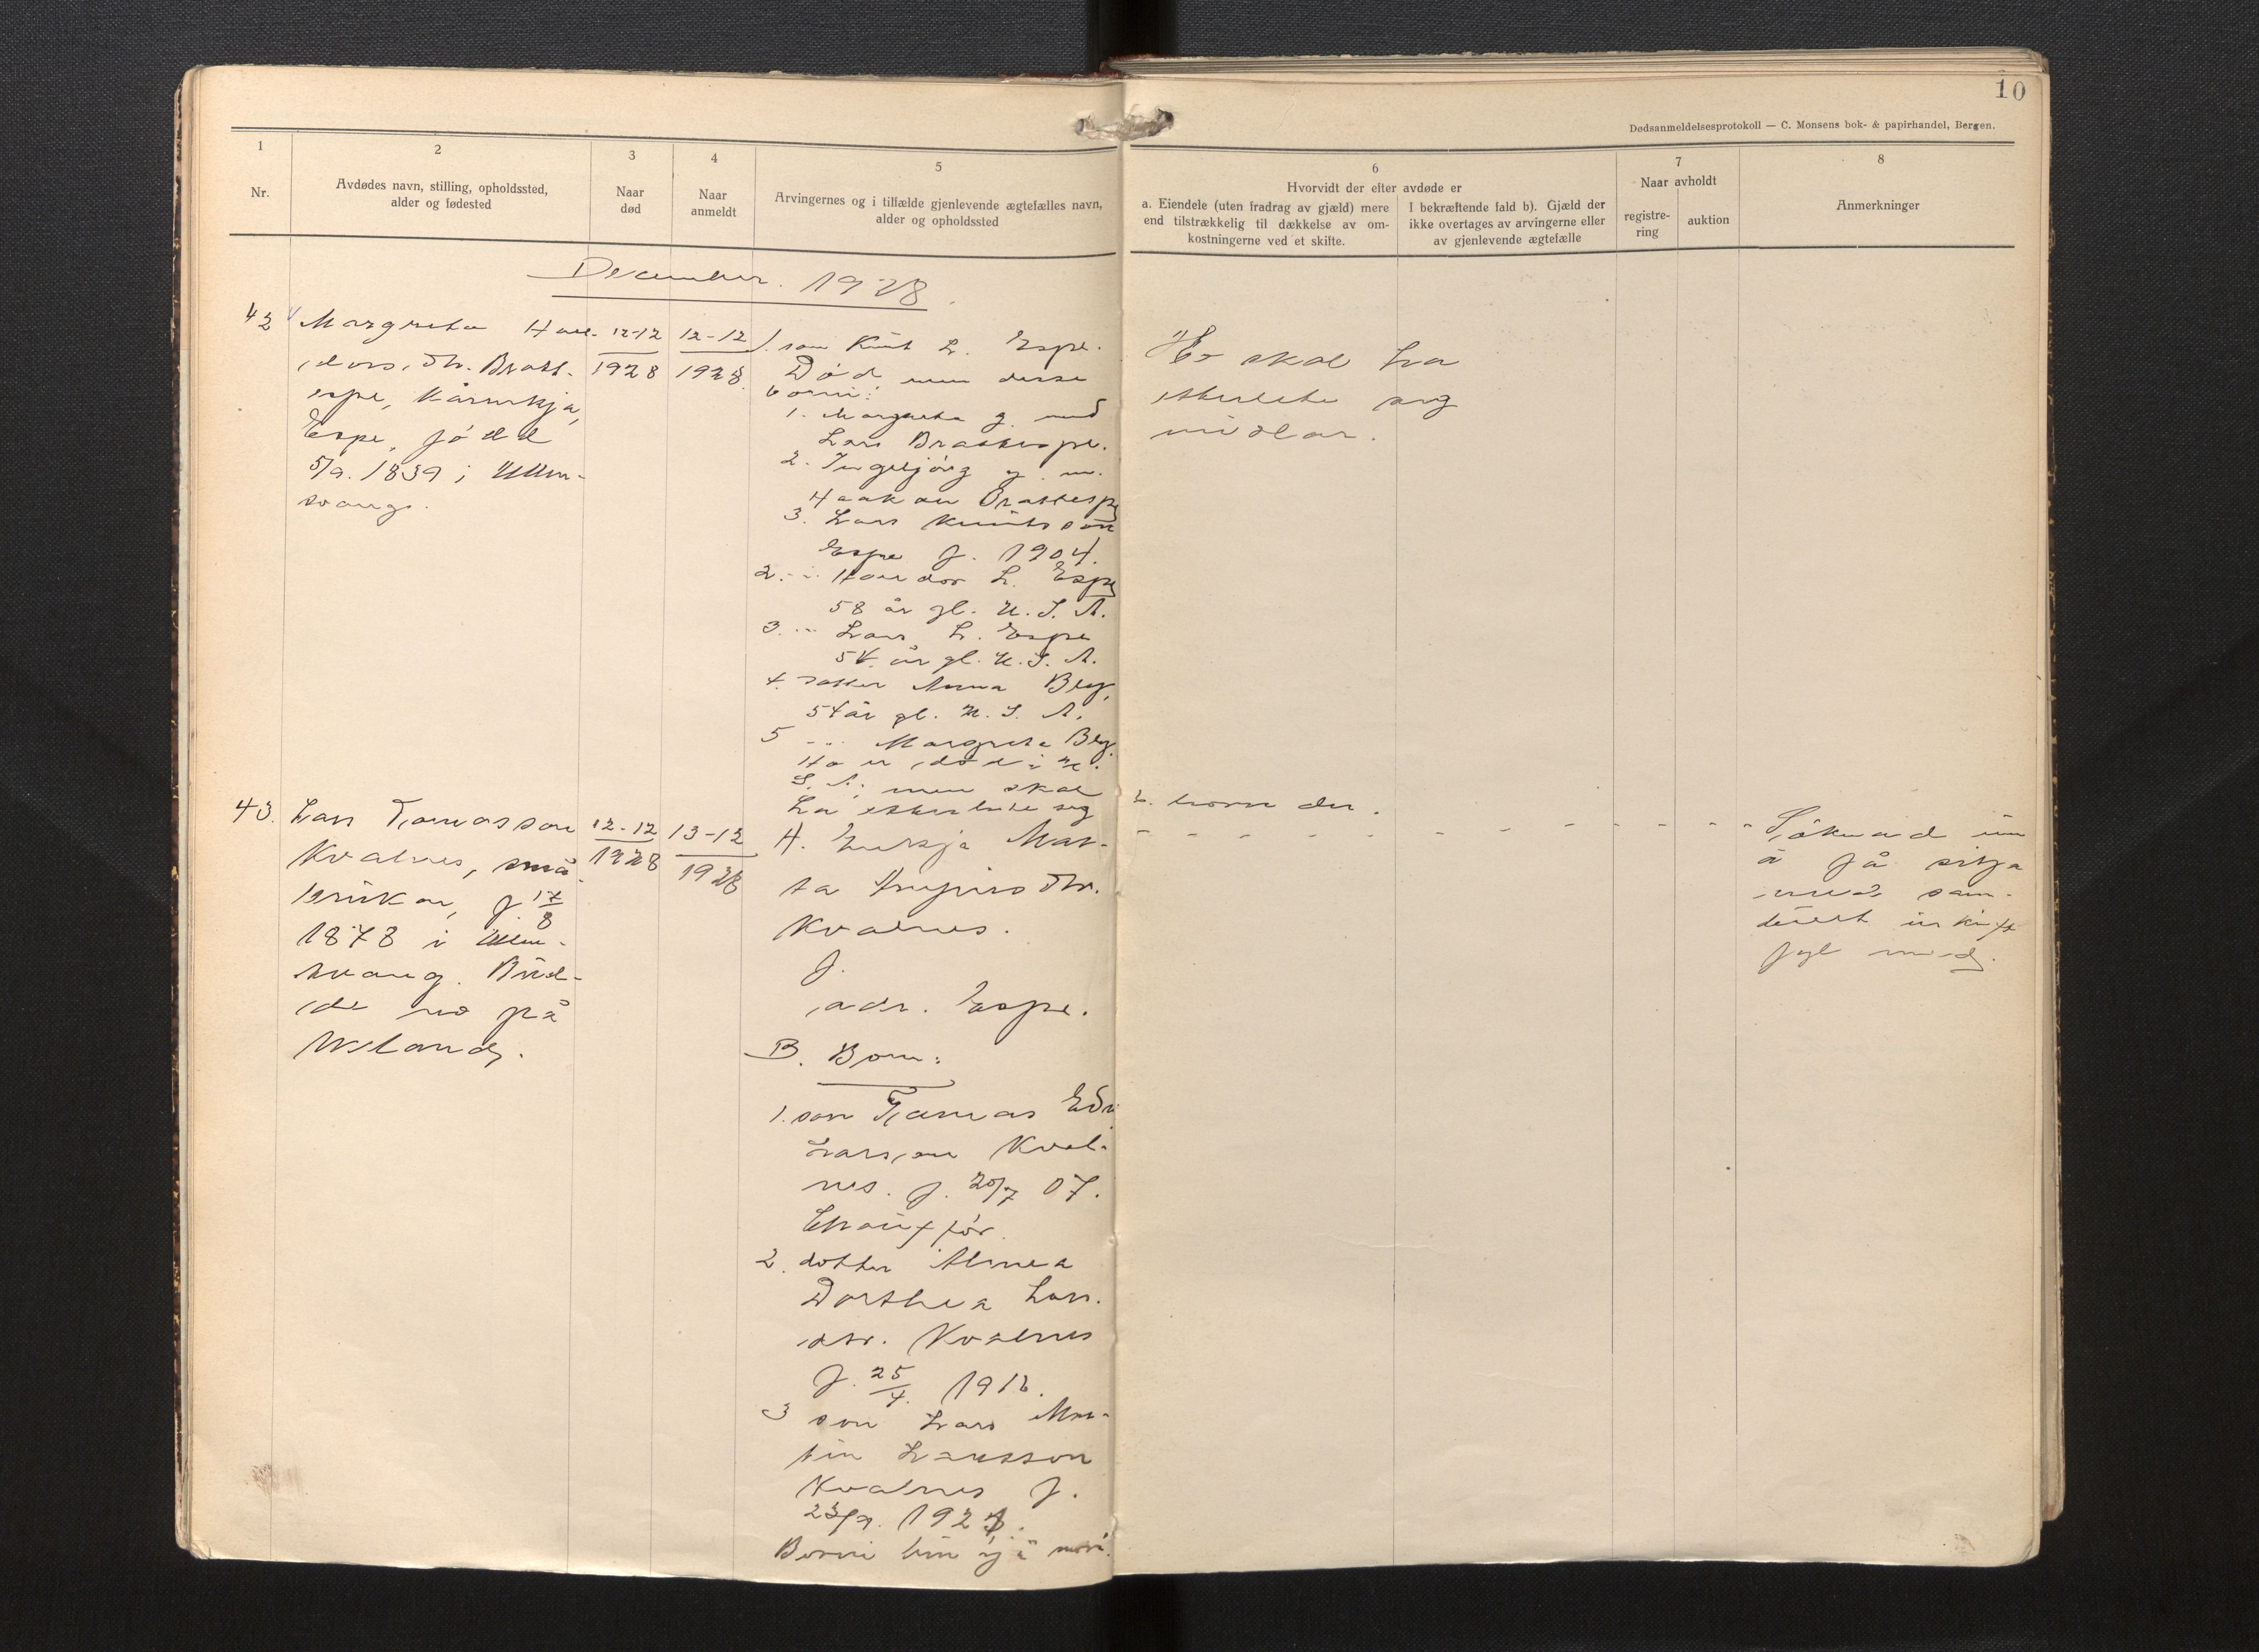 10
Dødsanmeldelsesprotokoll — C. Monsens bok- & papirhandel, Bergen.
1
Nr.
2
Avdødes navn, stilling, opholdssted,
alder og fødested
3
Naar
død
4
Naar
anmeldt
5
Arvingernes og i tilfælde gjenlevende ægtefælles navn,
alder og opholdssted
6
Hvorvidt der efter avdøde er
a. Eiendele (uten fradrag av gjæld) mere
end tilstrækkelig til dækkelse av om-
kostningerne ved et skifte.
I bekræftende fald b). Gjæld der
ikke overtages av arvingerne eller
av gjenlevende ægtefælle
7
Naar avholdt
registre-
ring
auktion
8
Anmerkninger
December. 1928.
42
Margreta Hall-
dors. dtr. Bratt-
espe, kårmkja,
Espe, fødd
5/9. 1839 i Ullen-
svang.
12-12
1928
12-12
1928
1. son Knut L. Espe.
Død men desse
born:
1. Margreta g. med
Lars Brattespe.
2. Ingebjørg g. m.
Haakon Brattespe
3. Lars Knutsson
Espe f. 1904.
2. Halldor L. Espe
58 år gl. U. S. A.
3. Lars L. Espe
år gl. U. S. A.
4. dotter Anna
54 år gl. U. S. A.
5 Margreta
Ho er død i U.
S. A. men skal
ha etterlate seg
born der.
Er skal ha
etterlate seg
midlar.
43.
Lars Tomasson
Kvalnes, små
brukar, f. 17/8
1878 i Ullen-
svang. Bud-
de no på
12-12
1928
13-12
1928
A. Enkja Mar-
ta dtr.
Kvalnes.
f.
adr. Espe.
B. Born:
1. son Tomas
Larsson Kval-
nes. f. 20/7 07.
2. dotter Alma
Dorthea Lars-
dtr. Kvalnes
f. 25/4. 1916.
3 son Lars Mar-
tin Larsson
Kvalnes f.
192
Søknad um
å få sitja
med sam-
buet uskift
fyl med.